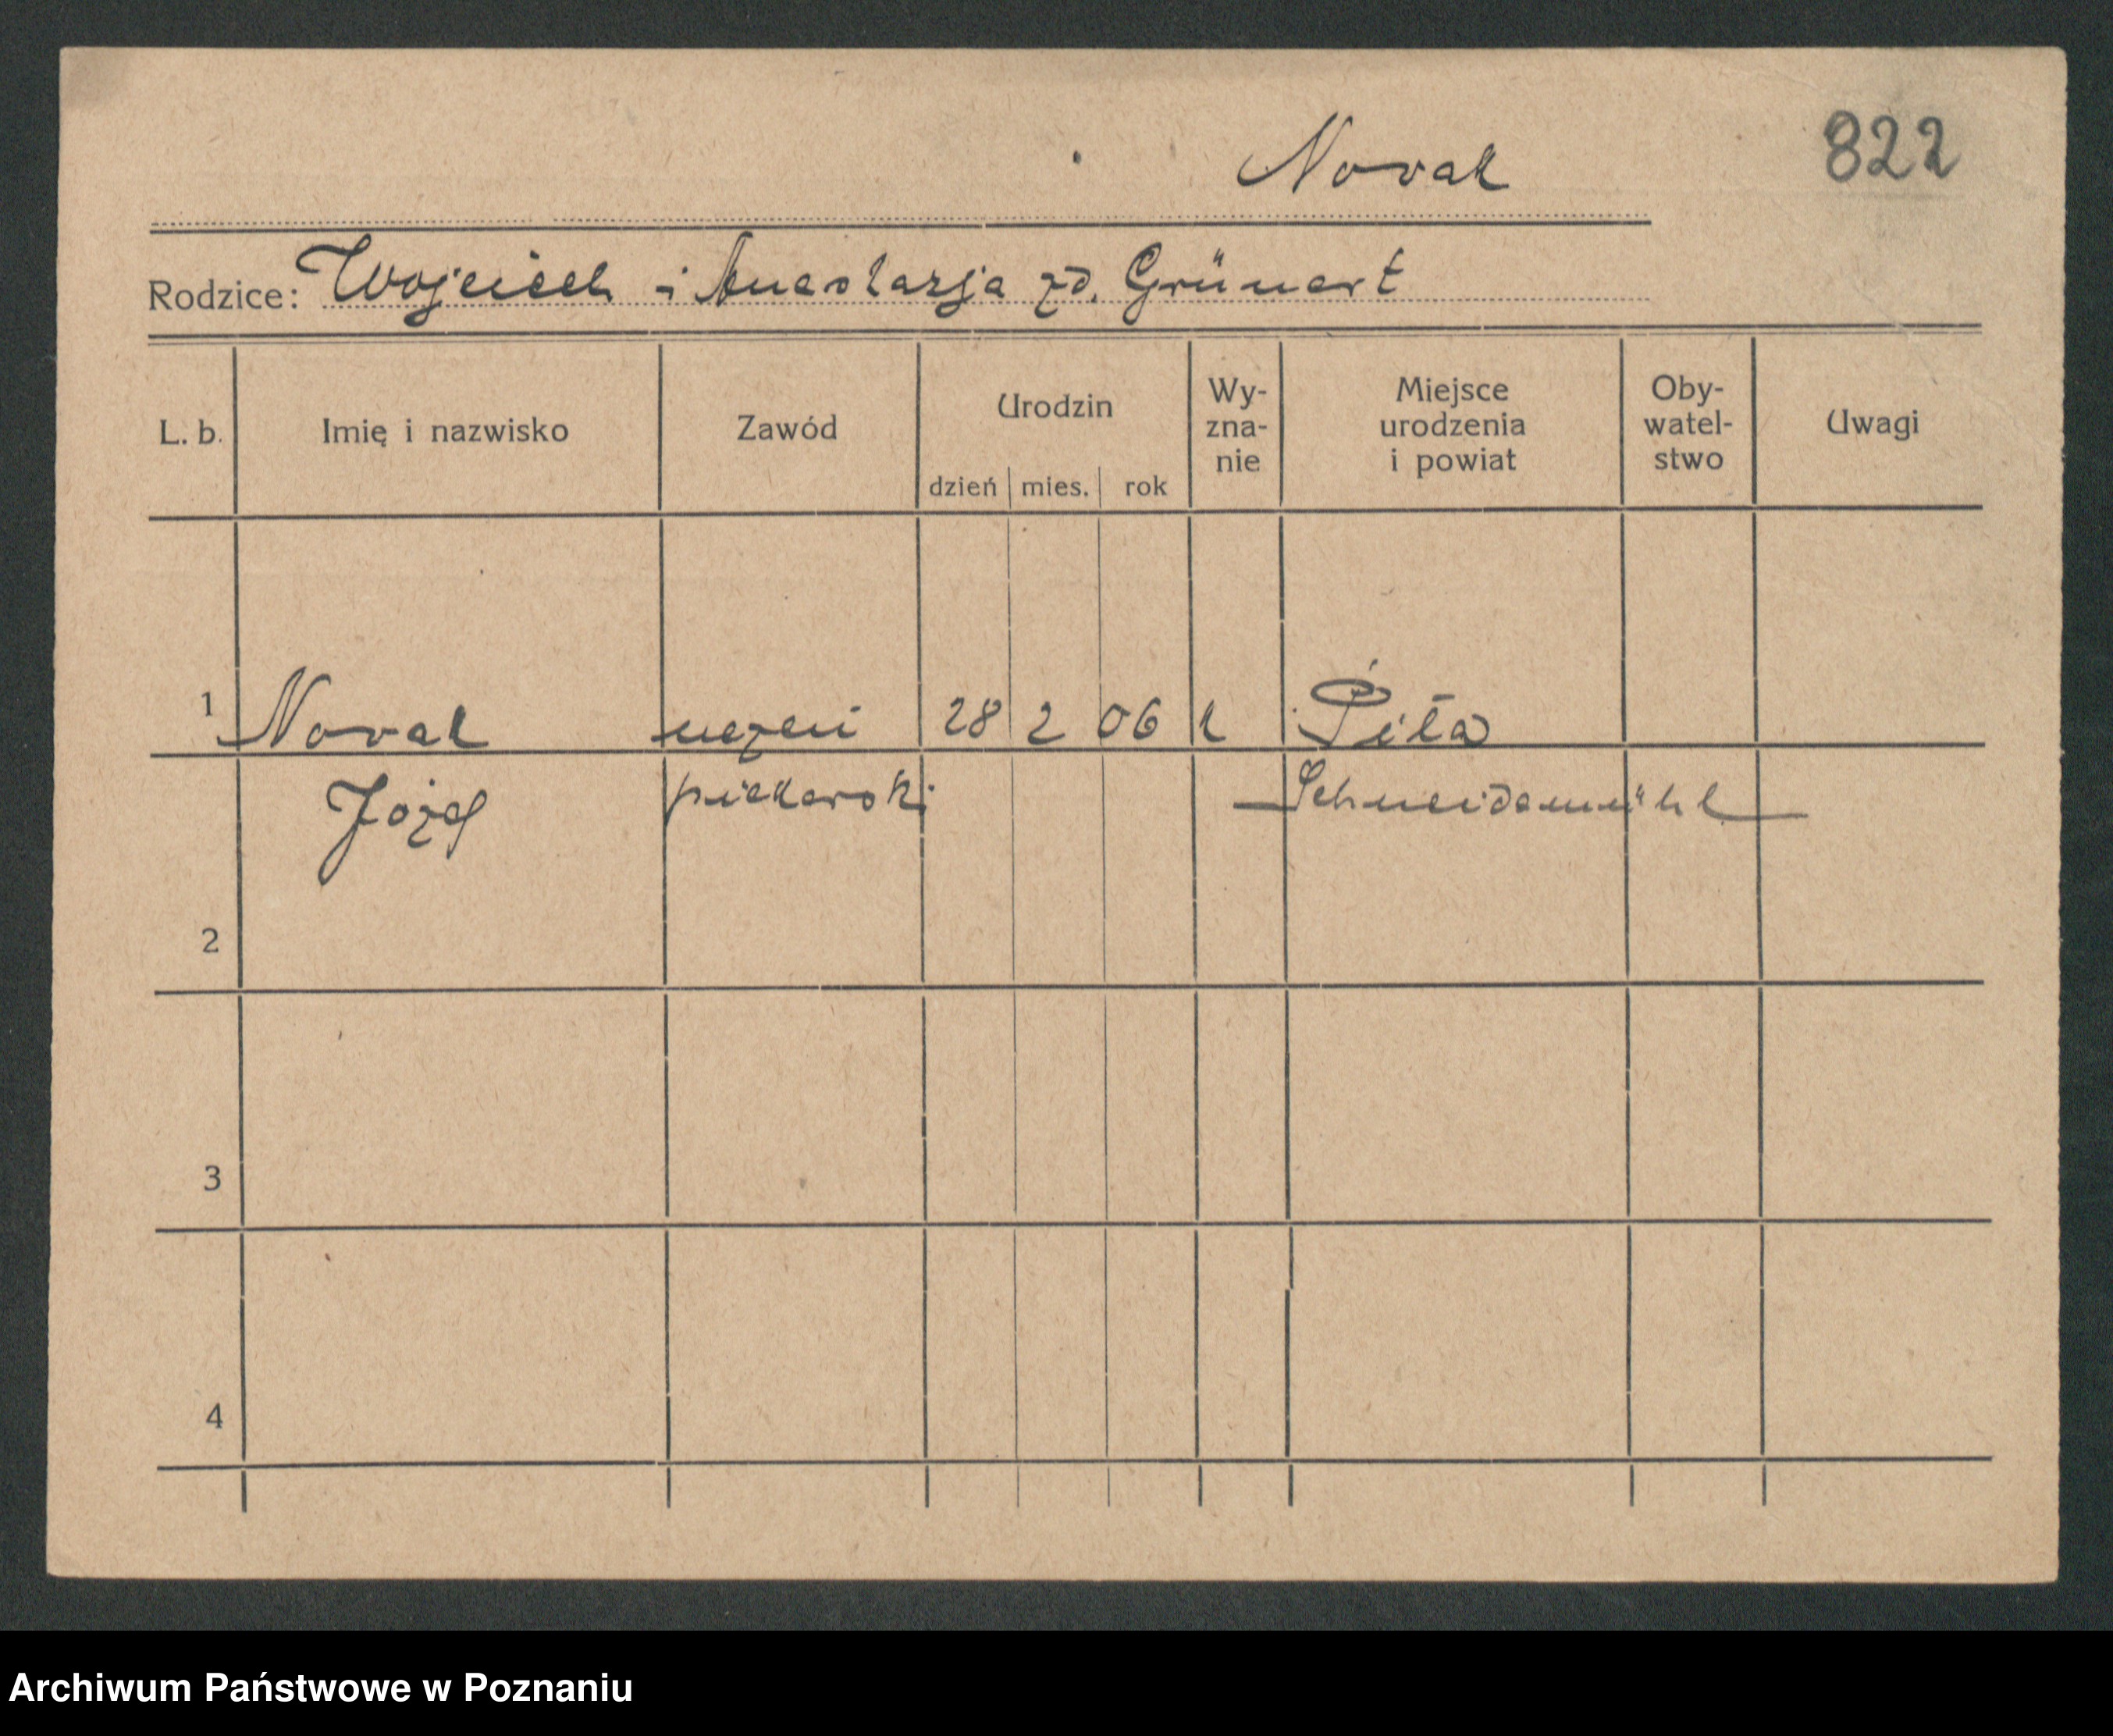 Novak
822
Rodzice: Wojciech i Anastazja zd. Grünert
L. b.
Imię i nazwisko
Zawód
Urodzin
dzień mies. rok
Wy-
zna-
nie
Miejsce
urodzenia
i powiat
Oby-
watel-
stwo
Uwagi
1 Novak uczeń 28 2 06 k Piła
Józef piekarski Schneidemühl
2
3
4
Archiwum Państwowe w Poznaniu